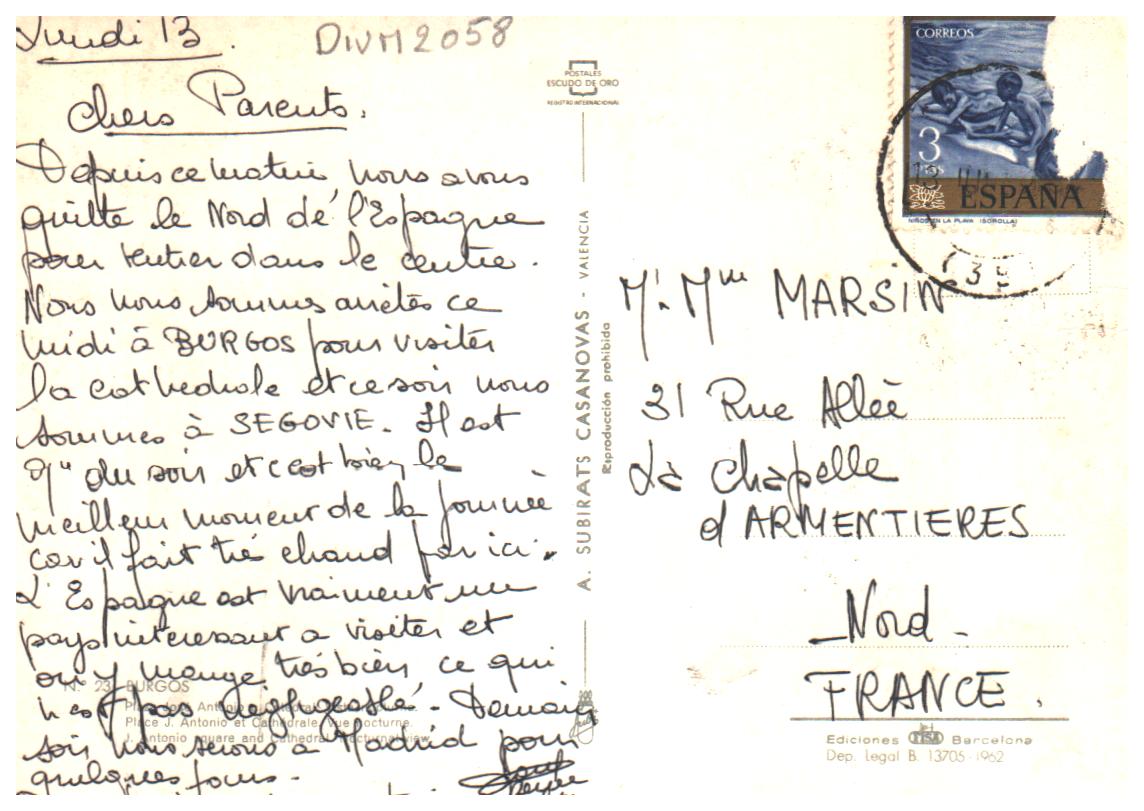 Lundi 13.
DIVM2058
Chers Parents.
Depuis ce matin nous avons
quitté le Nord de l'Espagne
pour rentrer dans le centre.
Nous nous sommes arrêtés ce
midi à BURGOS pour visiter
la cathedrale et ce soir nous
sommes à SEGOVIE. Il est
9h du soir et c'est bien le
meilleur moment de la journée
car il fait très chaud par ici.
L'Espagne est vraiment un
pays interessant a visiter et
on y mange très bien ce qui
n'est pas négligeable. Demain
soir nous serons à Madrid pour
quelques jours.
Nº 23 BURGOS
Plaza José Antonio y Catedral. Vista nocturna.
Place J. Antonio et Cathédrale. Vue nocturne.
J. Antonio square and Cathedral. Nocturnal view.
POSTALES
ESCUDO DE ORO
REGISTRO INTERNACIONAL
A. SUBIRATS CASANOVAS - VALENCIA
Reproducción prohibida
CORREOS
3
PTAS
ESPAÑA
NIÑOS EN LA PLAYA (SOROLLA)
Mr. Mme MARSIN
31 Rue Allée
La Chapelle
d'ARMENTIERES
Nord
FRANCE.
Ediciones FISA Barcelona
Dep. Legal B. 13705-1962